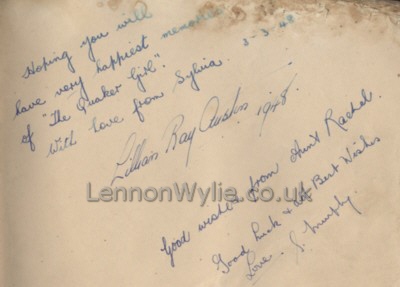 Hoping you will
have very happiest memories
of "The Quaker Girl".
With Love from Sylvia.
5-3-48
Lillian Ray Austin 1948.
LennonWylie.co.uk
Good wishes from Aunt Rachel.
Good Luck & Best Wishes
Love. S. Murphy.